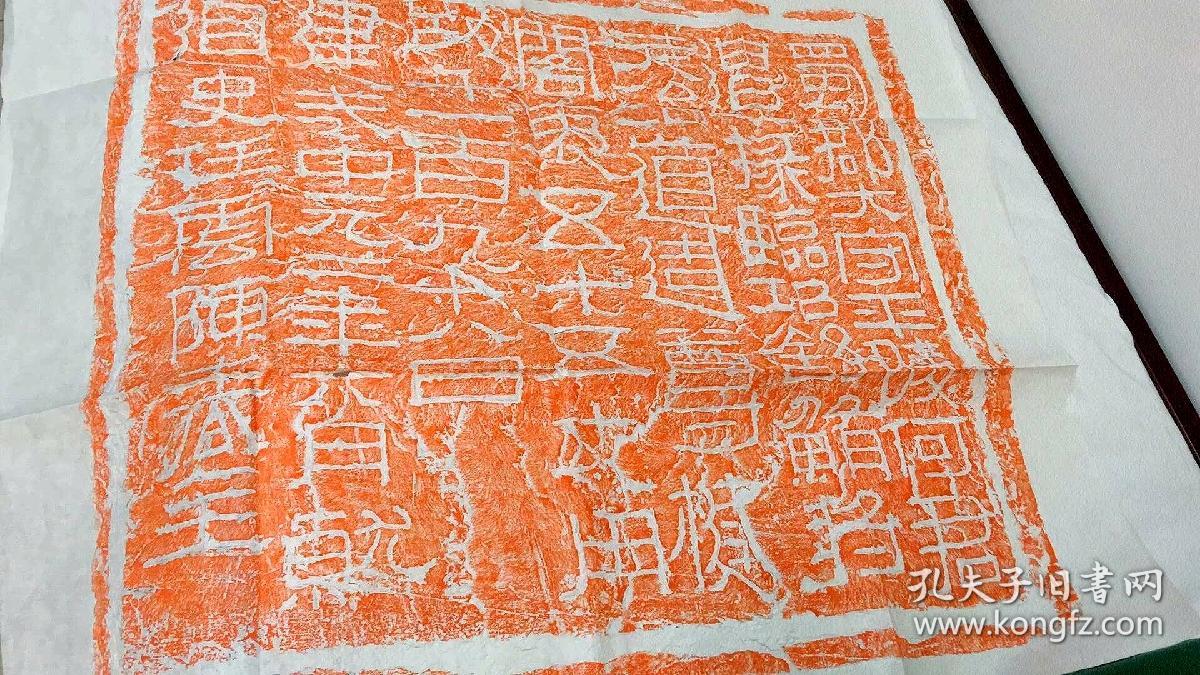 蜀郡大守平陵何君
遣掾臨邛舒鮪將
徒治道造尊楗
閣袤五十五丈用
功千一百九十八日
建武中元二年六月就
道史任雲陳春主
孔夫子旧書网
www.kongfz.com